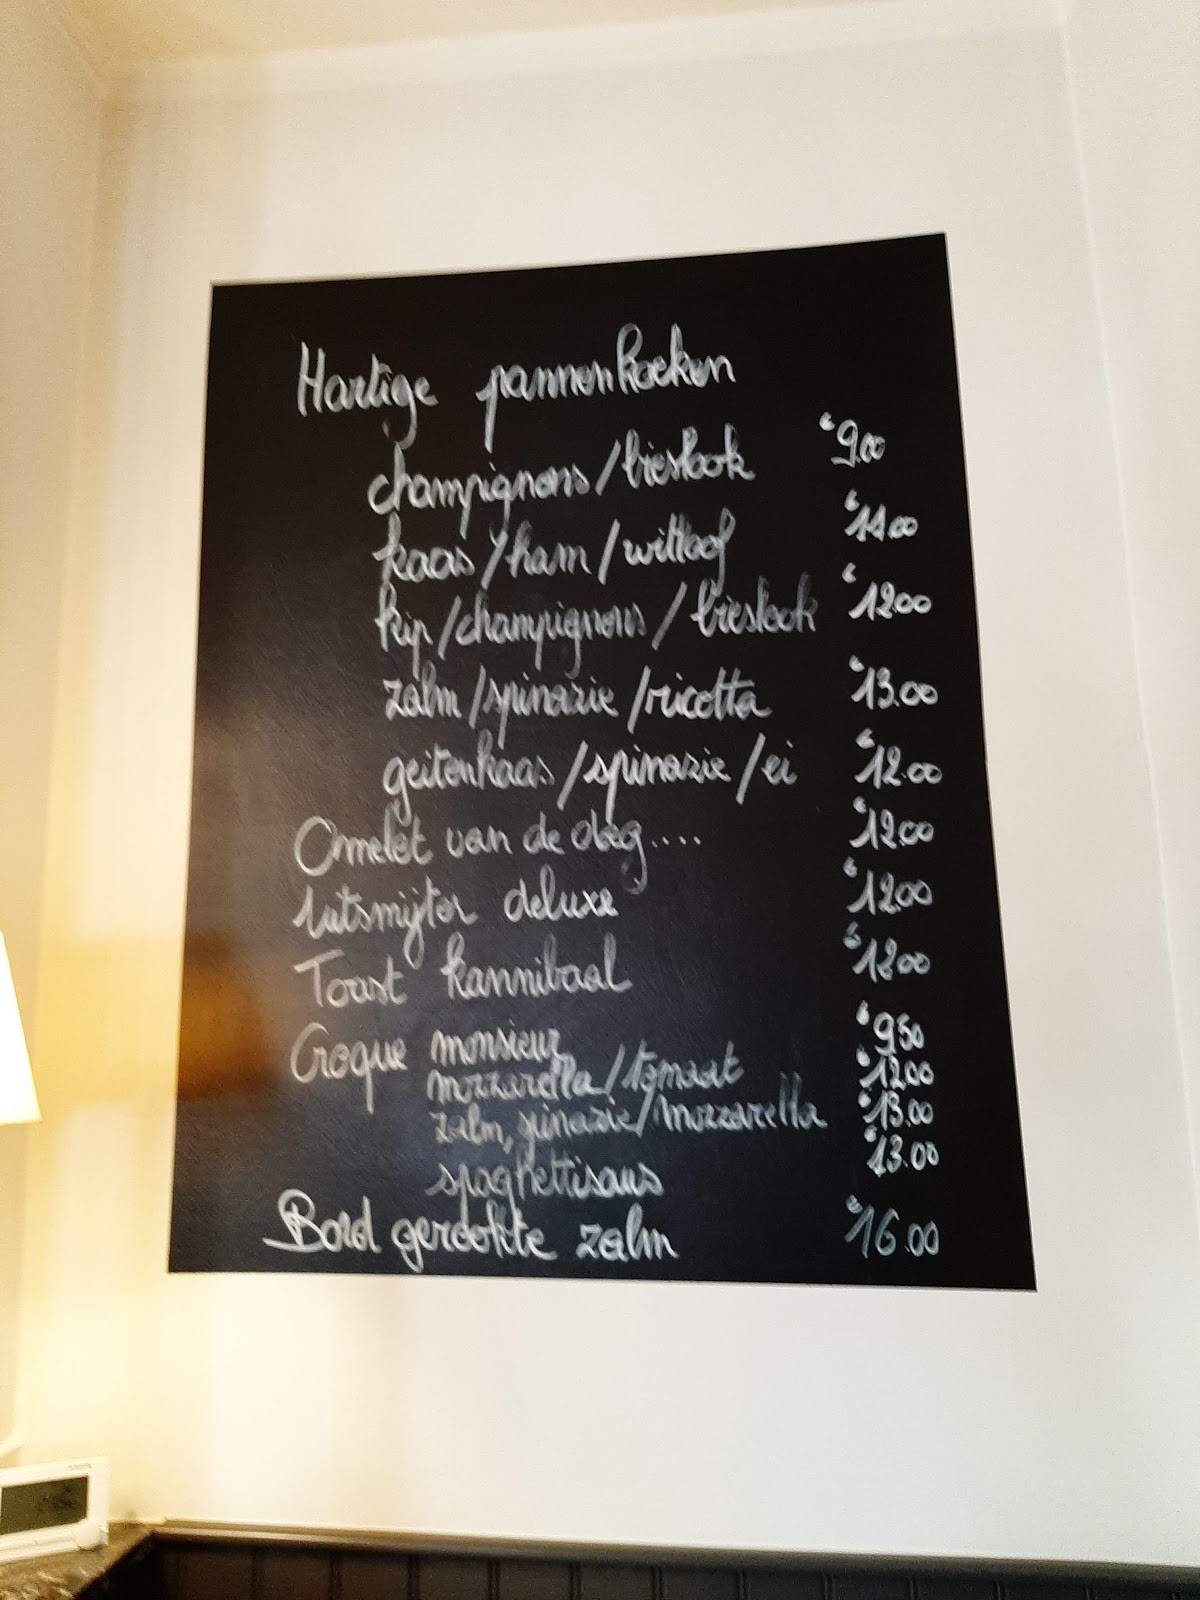 Hartige pannenkoeken
champignons/bieslook € 9.00
kaas/ham/witloof € 11.00
kip/champignons/bieslook € 12.00
zalm/spinazie/ricotta € 13.00
geitenkaas/spinazie/ei € 12.00
Omelet van de dag.... € 12.00
Uitsmijter deluxe € 12.00
Toast kannibaal € 12.00
Croque monsieur € 9.50
mozzarella/tomaat € 12.00
zalm,spinazie/mozzarella € 13.00
spaghettisaus € 13.00
Bord gerookte zalm € 16.00